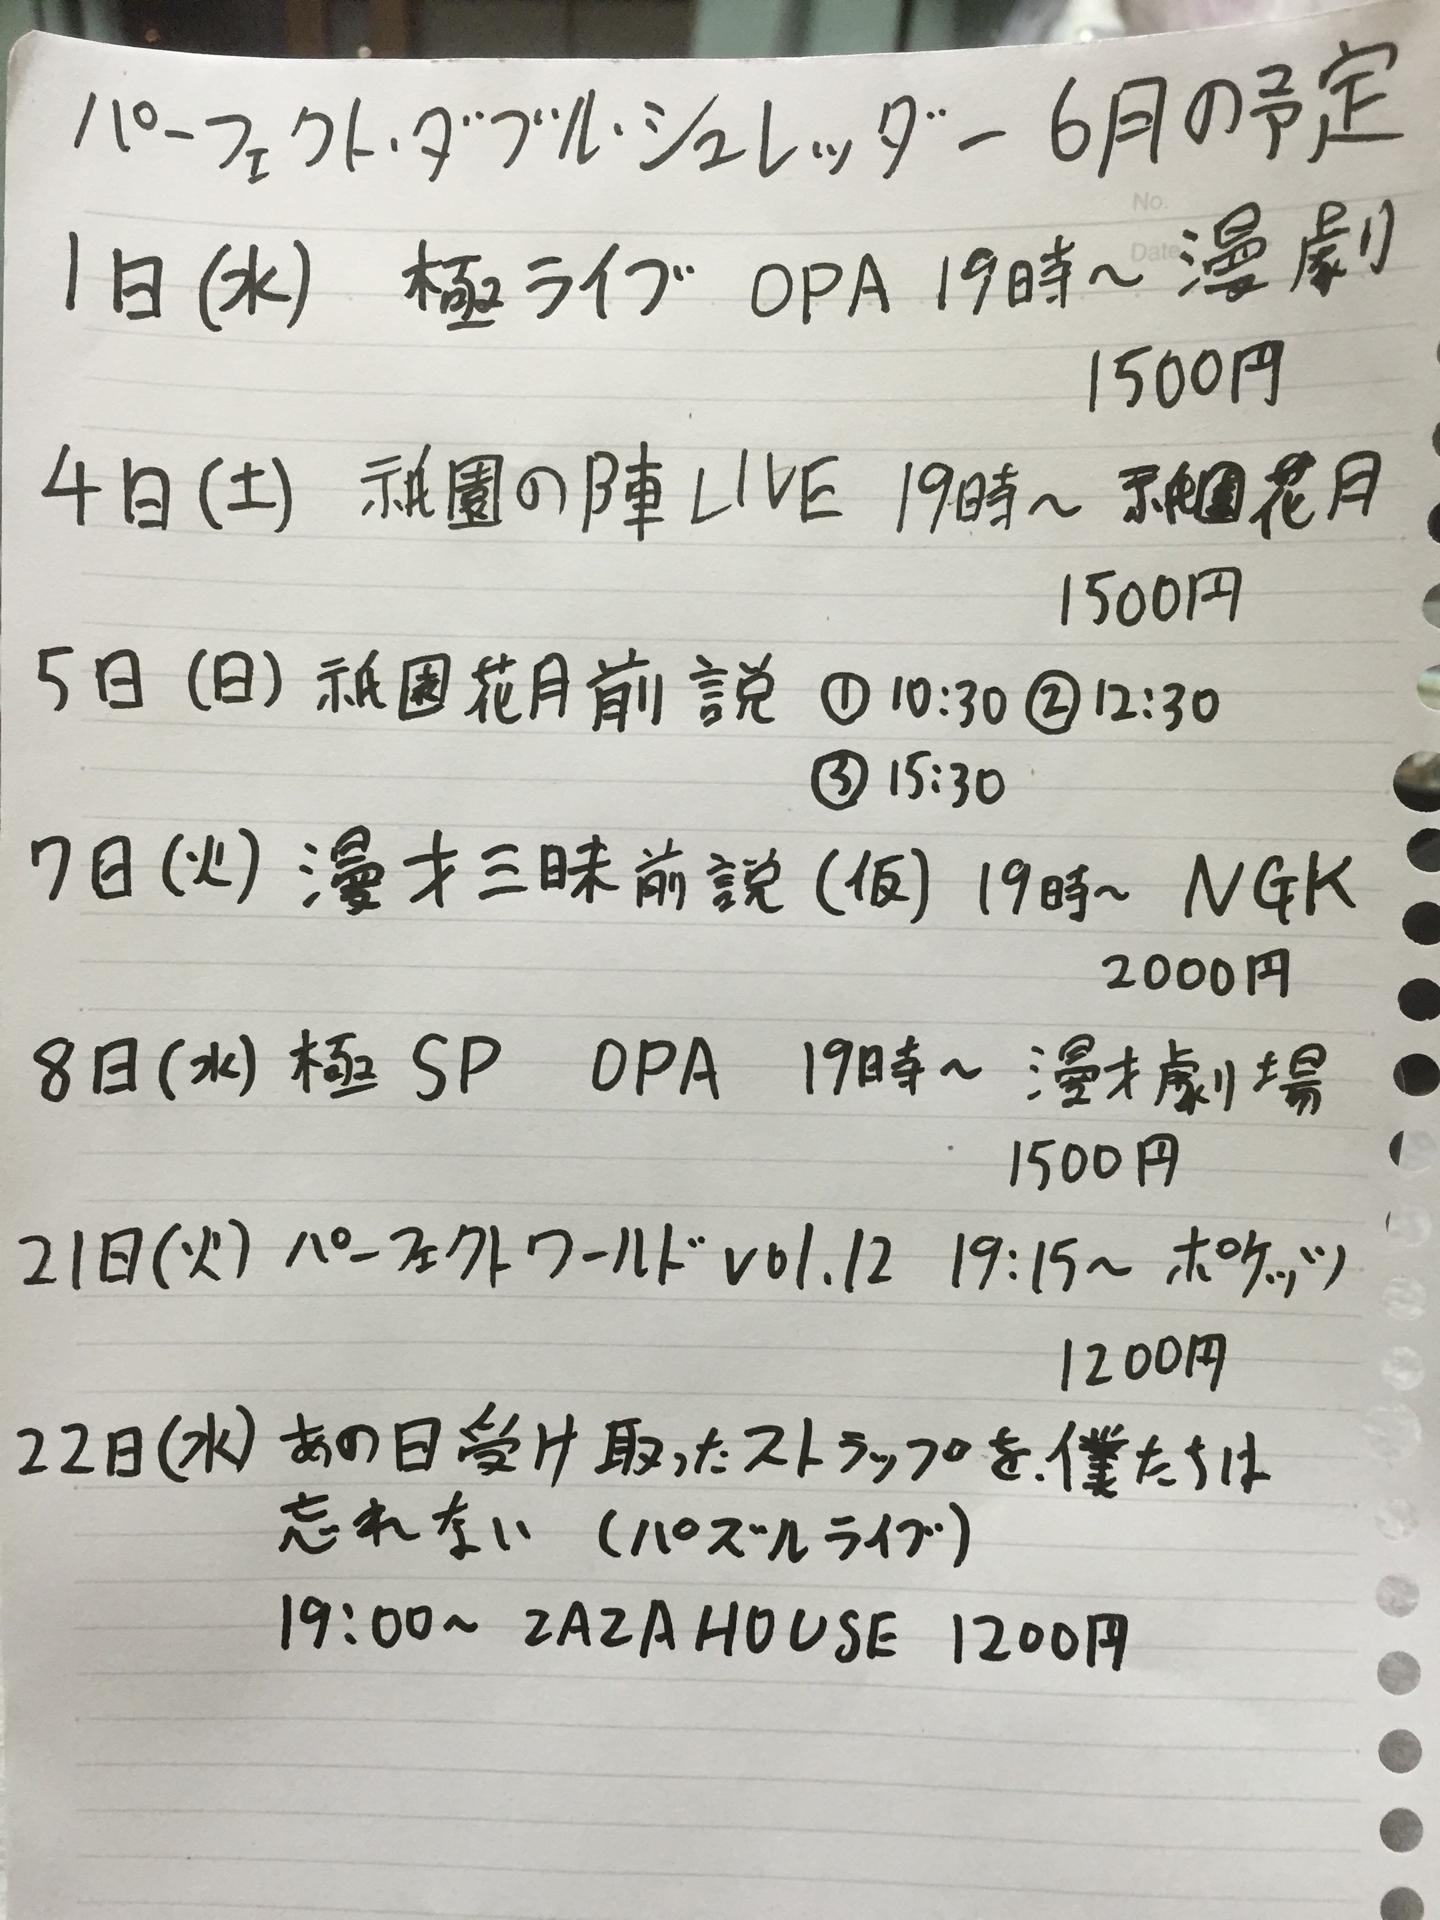 パーフェクト・ダブル・シュレッダー 6月の予定
No.
Date
1日(水) 極ライブ OPA 19時〜 漫劇
1500円
4日(土) 祇園の陣LIVE 19時〜 祇園花月
1500円
5日(日) 祇園花月前説 ①10:30 ②12:30
③15:30
7日(火) 漫才三昧前説(仮) 19時〜 NGK
2000円
8日(水) 極SP OPA 19時〜 漫才劇場
1500円
21日(火) パーフェクトワールドvol.12 19:15〜 ポケッツ
1200円
22日(水) あの日受け取ったストラップを、僕たちは
忘れない (パズルライブ)
19:00〜 ZAZA HOUSE 1200円